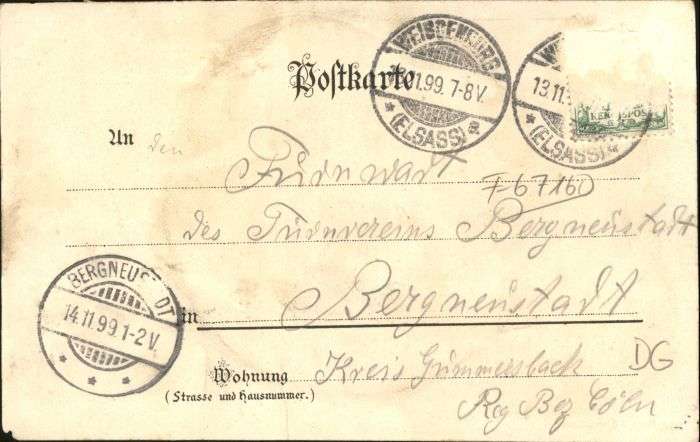 Postkarte
WEISSENBURG
13.11.99. 7-8V.
* (ELSASS) *
13.11.
* (ELSASS) *
An den
Turnwart
F-67160
des Turnvereins Bergneustadt
BERGNEUSTADT
14.11.99. 1-2V.
* * *
in Bergneustadt
Wohnung
(Strasse und Hausnummer.)
Kreis Gummersbach
DG
Reg Bez Cöln